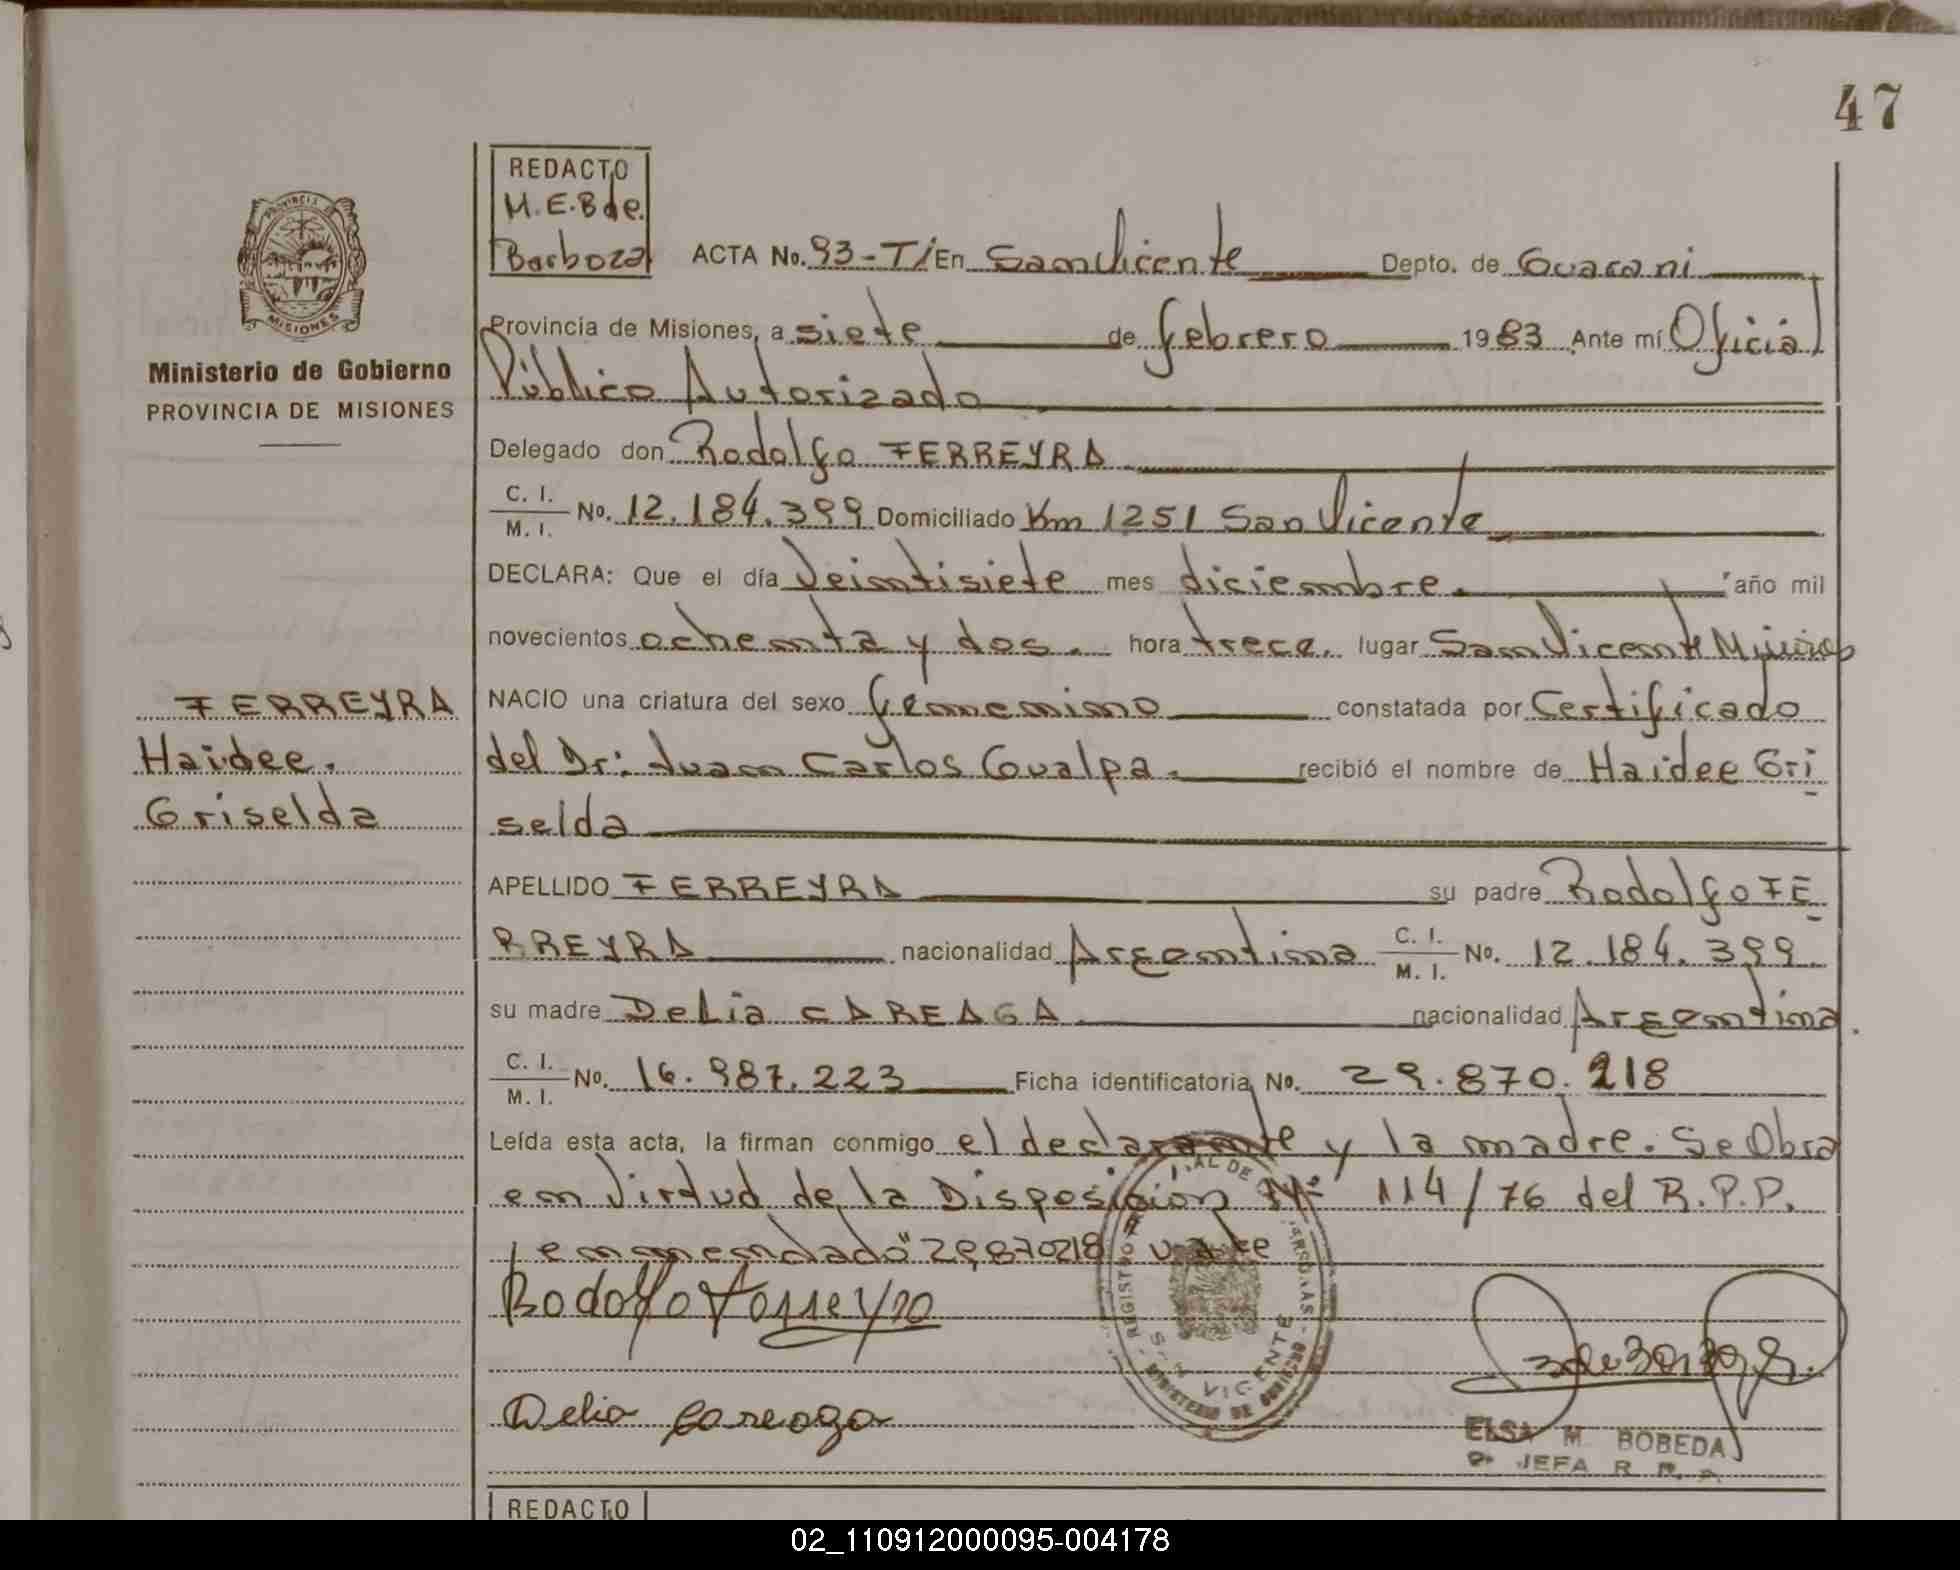 47
REDACTO
M.E.B de.
Barboza
PROVINCIA DE
MISIONES
Ministerio de Gobierno
PROVINCIA DE MISIONES
ACTA No. 93-T/ En San Vicente Depto. de Guarani
Provincia de Misiones, a siete de febrero 1983 Ante mí Oficial
Público Autorizado
Delegado don Rodolfo FERREYRA
C. I. / M. I. No. 12.184.399 Domiciliado Km 1251 San Vicente
DECLARA: Que el día Veintisiete mes diciembre. año mil
novecientos ochenta y dos. hora trece. lugar San Vicente
NACIO una criatura del sexo femenino constatada por Certificado
del Dr: Juan Carlos Gualpa. recibió el nombre de Haidee Gri
selda
FERREYRA
Haidee.
Griselda
APELLIDO FERREYRA su padre Rodolfo FE
RREYRA nacionalidad Argentina C. I. / M. I. No. 12.184.399.
su madre Delia CAREAGA nacionalidad Argentina.
C. I. / M. I. No. 16.987.223 Ficha identificatoria No. 29.870.218
Leída esta acta, la firman conmigo el declarante y la madre. Se Obra
en Virtud de la Disposición Nº 114/76 del R.P.P.
enmendado "29870218 vale
Rodolfo Ferreyra
Delia Careaga
REGISTRO
VICENTE
MINISTERIO DE GOBIERNO
ELSA M. BOBEDA
JEFA R.
REDACTO
02_110912000095-004178